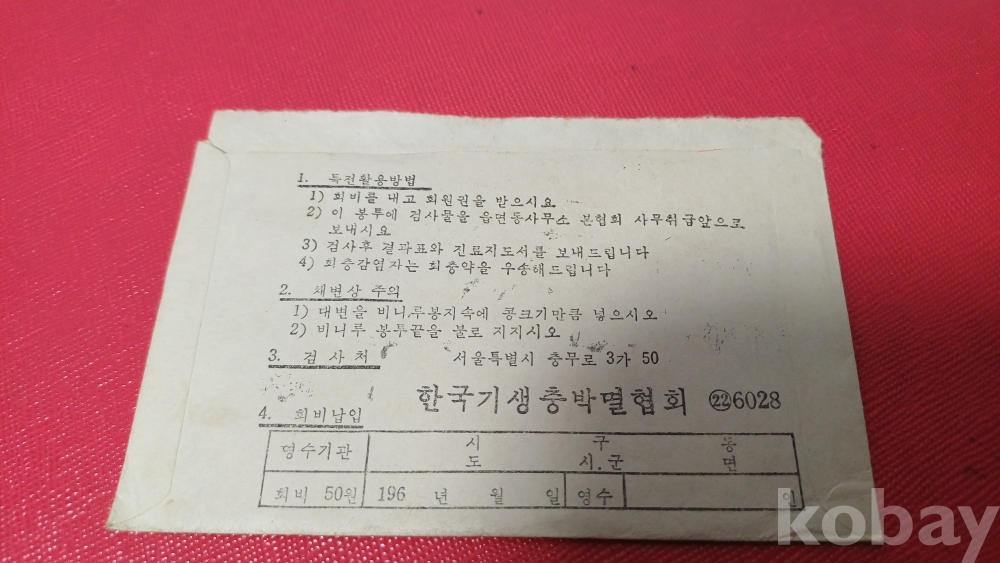 1. 특전활용방법
1) 회비를 내고 회원권을 받으시요
2) 이 봉투에 검사물을 읍면동사무소 본협회 사무취급앞으로
보내시요
3) 검사후 결과표와 진료지도서를 보내드립니다
4) 회충감염자는 회충약을 우송해드립니다
2. 채변상 주의
1) 대변을 비니루봉지속에 콩크기만큼 넣으시오
2) 비니루 봉투끝을 불로 지지시오
3. 검사처 서울특별시 충무로 3가 50
한국기생충박멸협회 ㉒6028
4. 회비납입
영수기관 시 구 동
도 시.군 면
회비 50원 196 년 월 일 영수 인
kobay